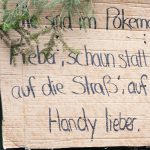 sind im Pokemon
Fieber, schaun statt
auf die Straß', auf
Handy lieber.